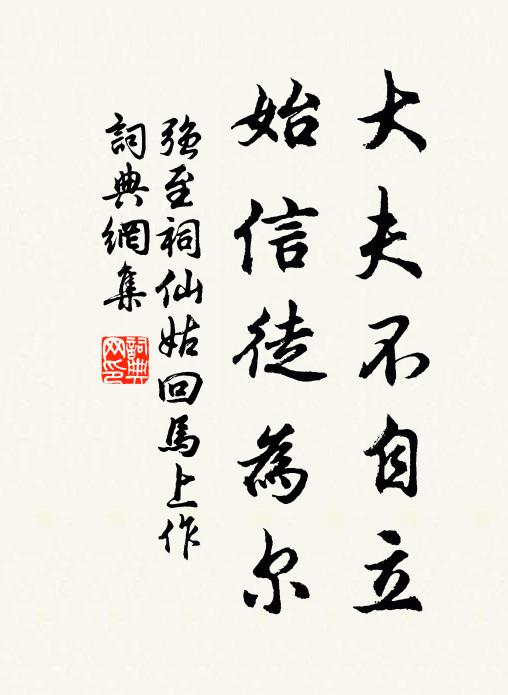 大夫不自立
始信徒為尔
強至祠仙姑回馬上作
詞典網集
詞典网印